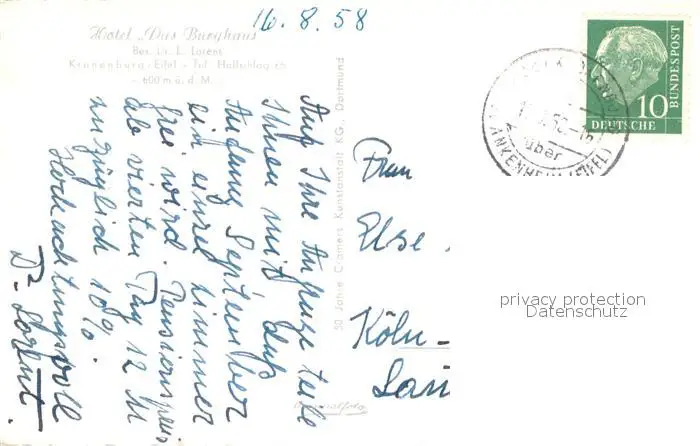 16.8.58
Hotel „Das Burghaus"
Bes. Dr. L. Lorent
Kronenburg-Eifel - Tel. Hallschlag
- 600 m ü. d. M. -
Auf Ihre Anfrage teile
Ihnen mit, daß
Anfang September
ein einzel Zimmer
frei wird. Pensionspreis
ab vierten Tag 12 M
zuzüglich 10%.
Hochachtungsvoll
Dr. Lorent.
50 Jahre Cramers Kunstanstalt KG., Dortmund
Frau
Else
Köln-
DEUTSCHE
BUNDESPOST
10
über
BLANKENHEIM (EIFEL)
privacy protection
Datenschutz